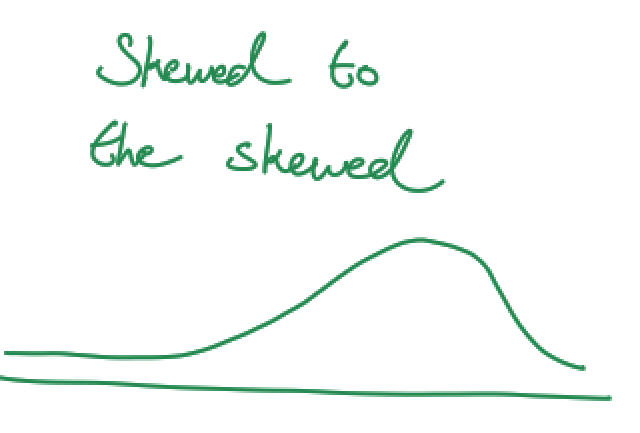 Skewed to
the skewed